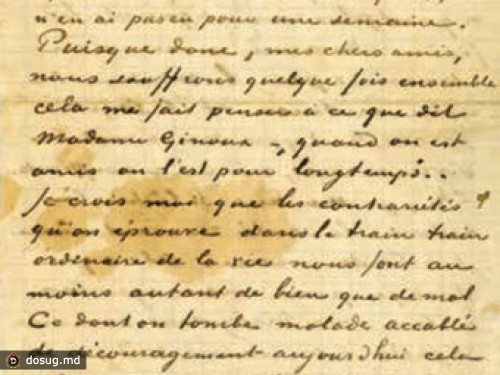 n'en ai pas eu pour une semaine.
Puisque donc, mes chers amis,
nous souffrons quelque fois ensemble
cela me fait penser à ce que dit
Madame Ginoux -, quand on est
amis on l'est pour longtemps..
Je crois moi que les contrariétés
qu'on éprouve dans le train train
ordenaire de la vie nous font au
moins autant de bien que de mal
Ce dont on tombe malade accablé
de découragement aujourd'hui cela
dosug.md